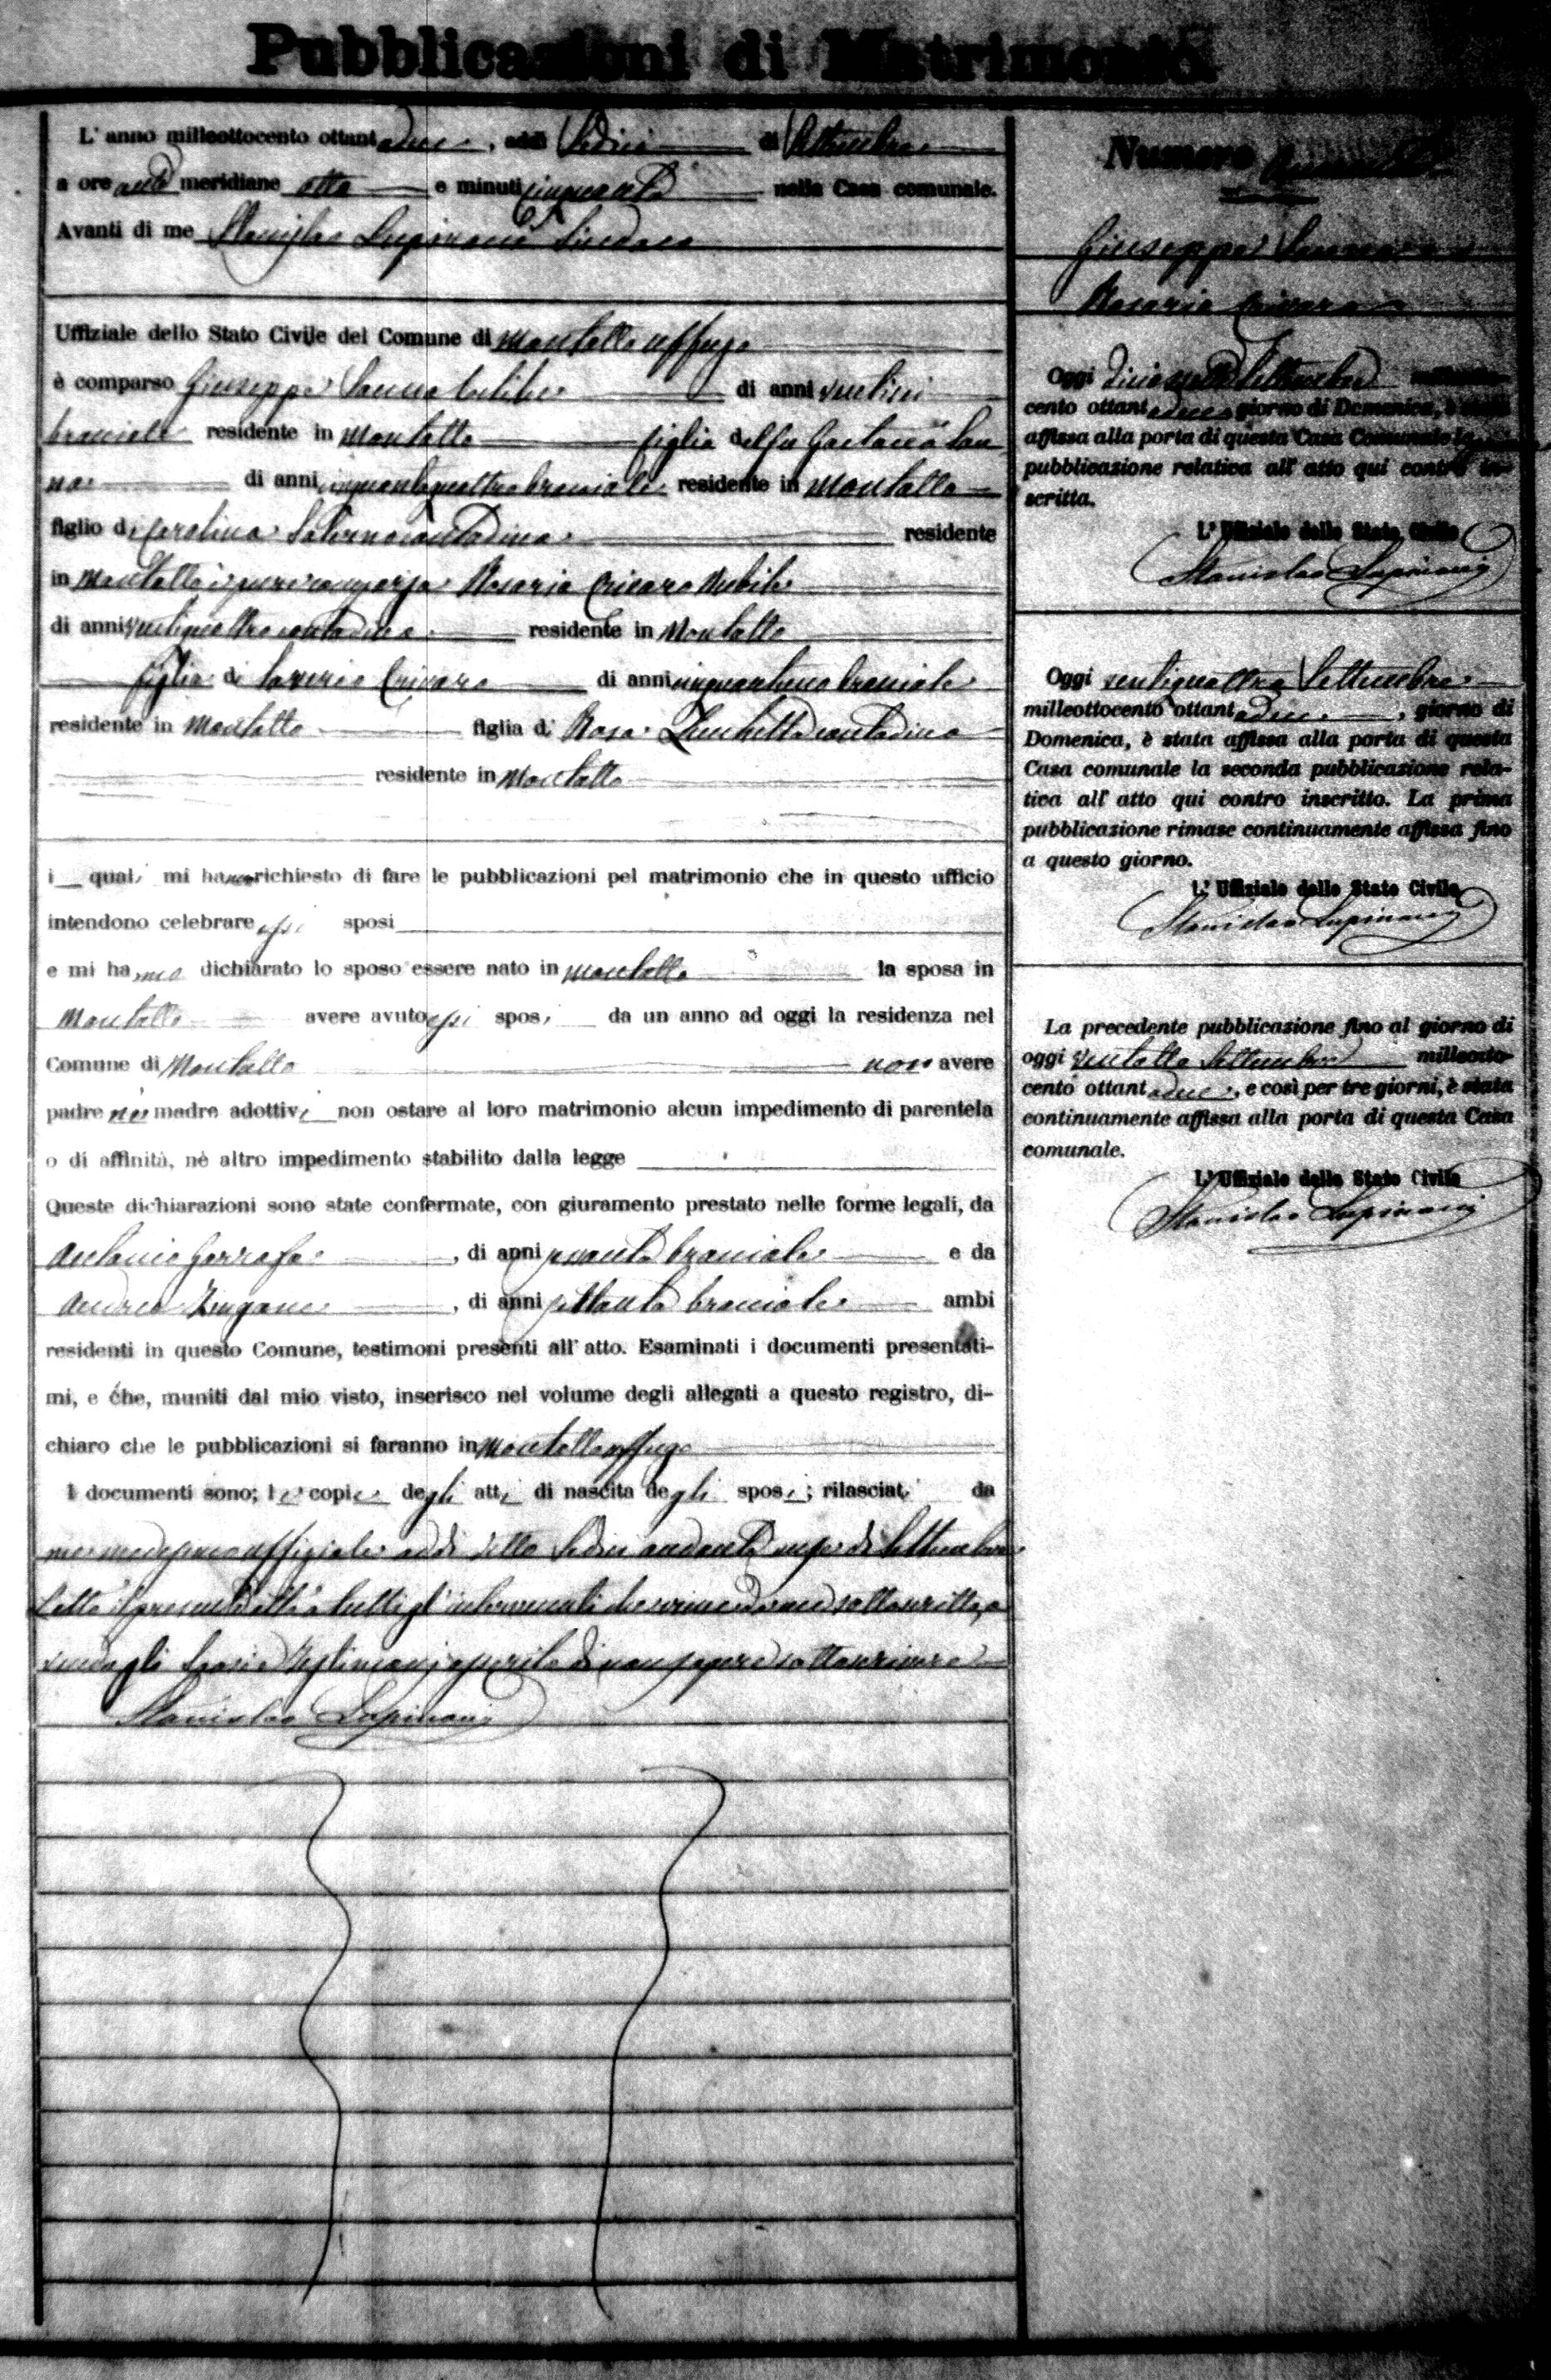 Pubblicazioni di Matrimonio.
L'anno milleottocento ottantadue, addì Sedici di Settembre
a ore anti meridiane otto e minuti cinquanta nella Casa comunale.
Avanti di me Stanislao Lupinacci Sindaco
Uffiziale dello Stato Civile del Comune di Montalto Uffugo
è comparso Giuseppe Sanno Celibe di anni
bracciale residente in Montalto figlio del fu Gaetano San
no di anni cinquantaquattro bracciale residente in Montalto
figlio di Carolina Salerno contadina residente
in Montalto è pure comparsa Rosaria Crivaro Nubile
di anni ventiquattro contadina residente in Montalto
figlia di Saverio Crivaro di anni cinquantuno bracciale
residente in Montalto figlia di Rosa contadina
residente in Montalto
i quali mi hanno richiesto di fare le pubblicazioni pel matrimonio che in questo ufficio
intendono celebrare essi sposi
e mi hanno dichiarato lo sposo essere nato in Montalto la sposa in
Montalto avere avuto essi sposi da un anno ad oggi la residenza nel
Comune di Montalto non avere
padre nè madre adottivi non ostare al loro matrimonio alcun impedimento di parentela
o di affinità, nè altro impedimento stabilito dalla legge
Queste dichiarazioni sono state confermate, con giuramento prestato nelle forme legali, da
Antonio Garrafa, di anni bracciale e da
Andrea, di anni settanta bracciale ambi
residenti in questo Comune, testimoni presenti all'atto. Esaminati i documenti presentati-
mi, e che, muniti dal mio visto, inserisco nel volume degli allegati a questo registro, di-
chiaro che le pubblicazioni si faranno in Montalto Uffugo
I documenti sono; le copie degli atti di nascita degli sposi; rilasciati da
me medesimo uffiziale addì detto Sedici andante mese di Settembre
Letto il presente atto a tutti gl'intervenuti da me sottoscritto,
sposi e testimoni asserito di non sapere sottoscrivere
Stanislao Lupinacci
Numero
Giuseppe Sanno e
Rosaria Crivaro
Oggi diciassette Settembre milleotto-
cento ottantadue giorno di Domenica, è stata
affissa alla porta di questa Casa Comunale la
pubblicazione relativa all'atto qui contro in-
scritta.
L'Uffiziale dello Stato Civile
Stanislao Lupinacci
Oggi ventiquattro Settembre
milleottocento ottantadue, giorno di
Domenica, è stata affissa alla porta di questa
Casa comunale la seconda pubblicazione rela-
tiva all'atto qui contro inscritto. La prima
pubblicazione rimase continuamente affissa fino
a questo giorno.
L'Uffiziale dello Stato Civile
Stanislao Lupinacci
La precedente pubblicazione fino al giorno di
oggi ventotto Settembre milleotto-
cento ottantadue, e così per tre giorni, è stata
continuamente affissa alla porta di questa Casa
comunale.
L'Uffiziale dello Stato Civile
Stanislao Lupinacci